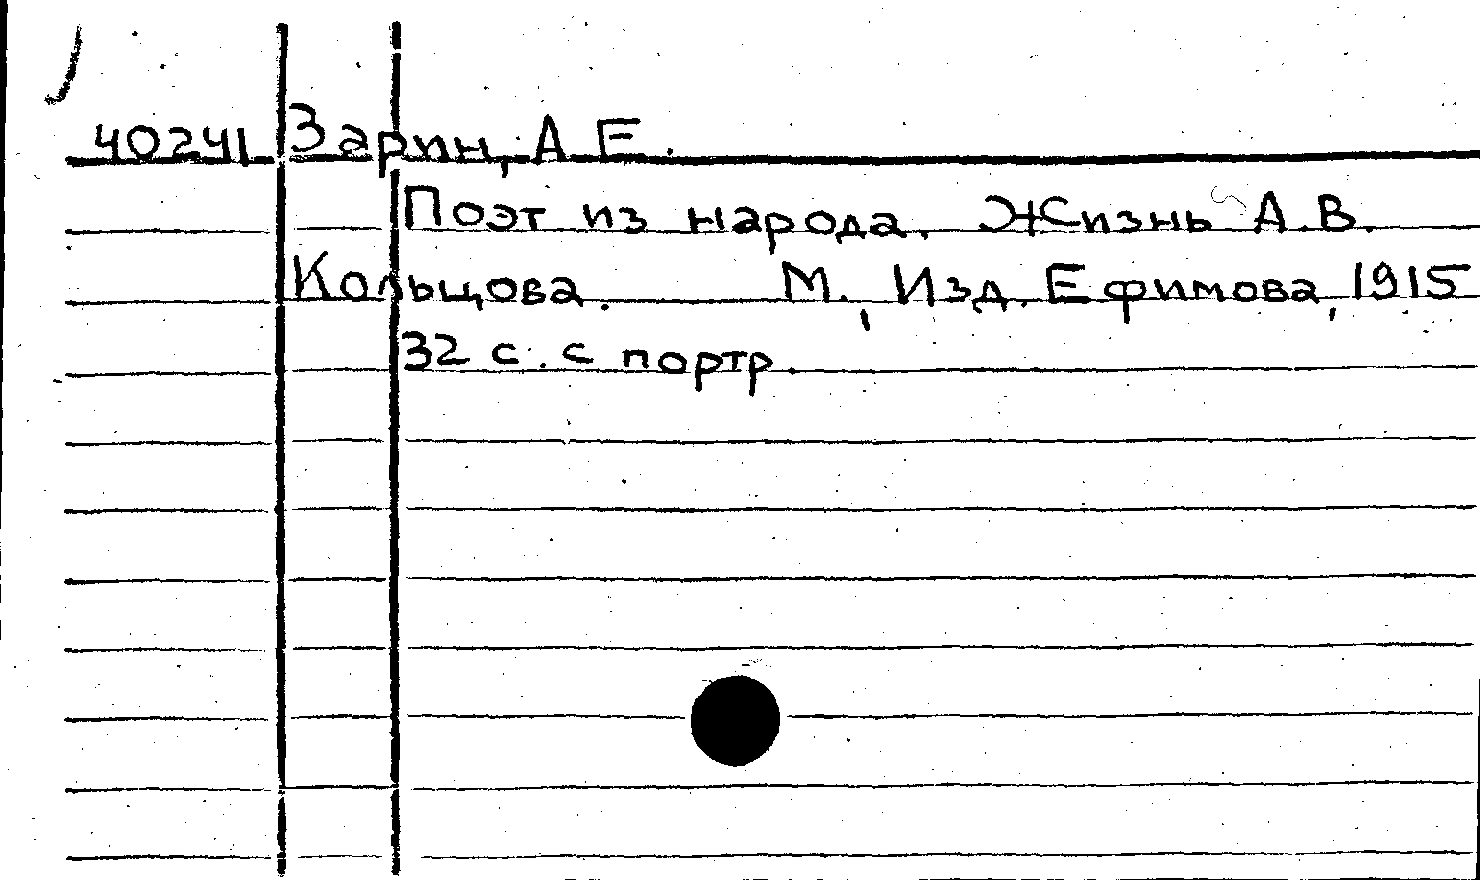 40241 Зарин, А Е.
Поэт из народа. Жизнь А.В.
Кольцова. М., Изд. Ефимова, 1915
32 с. с портр.